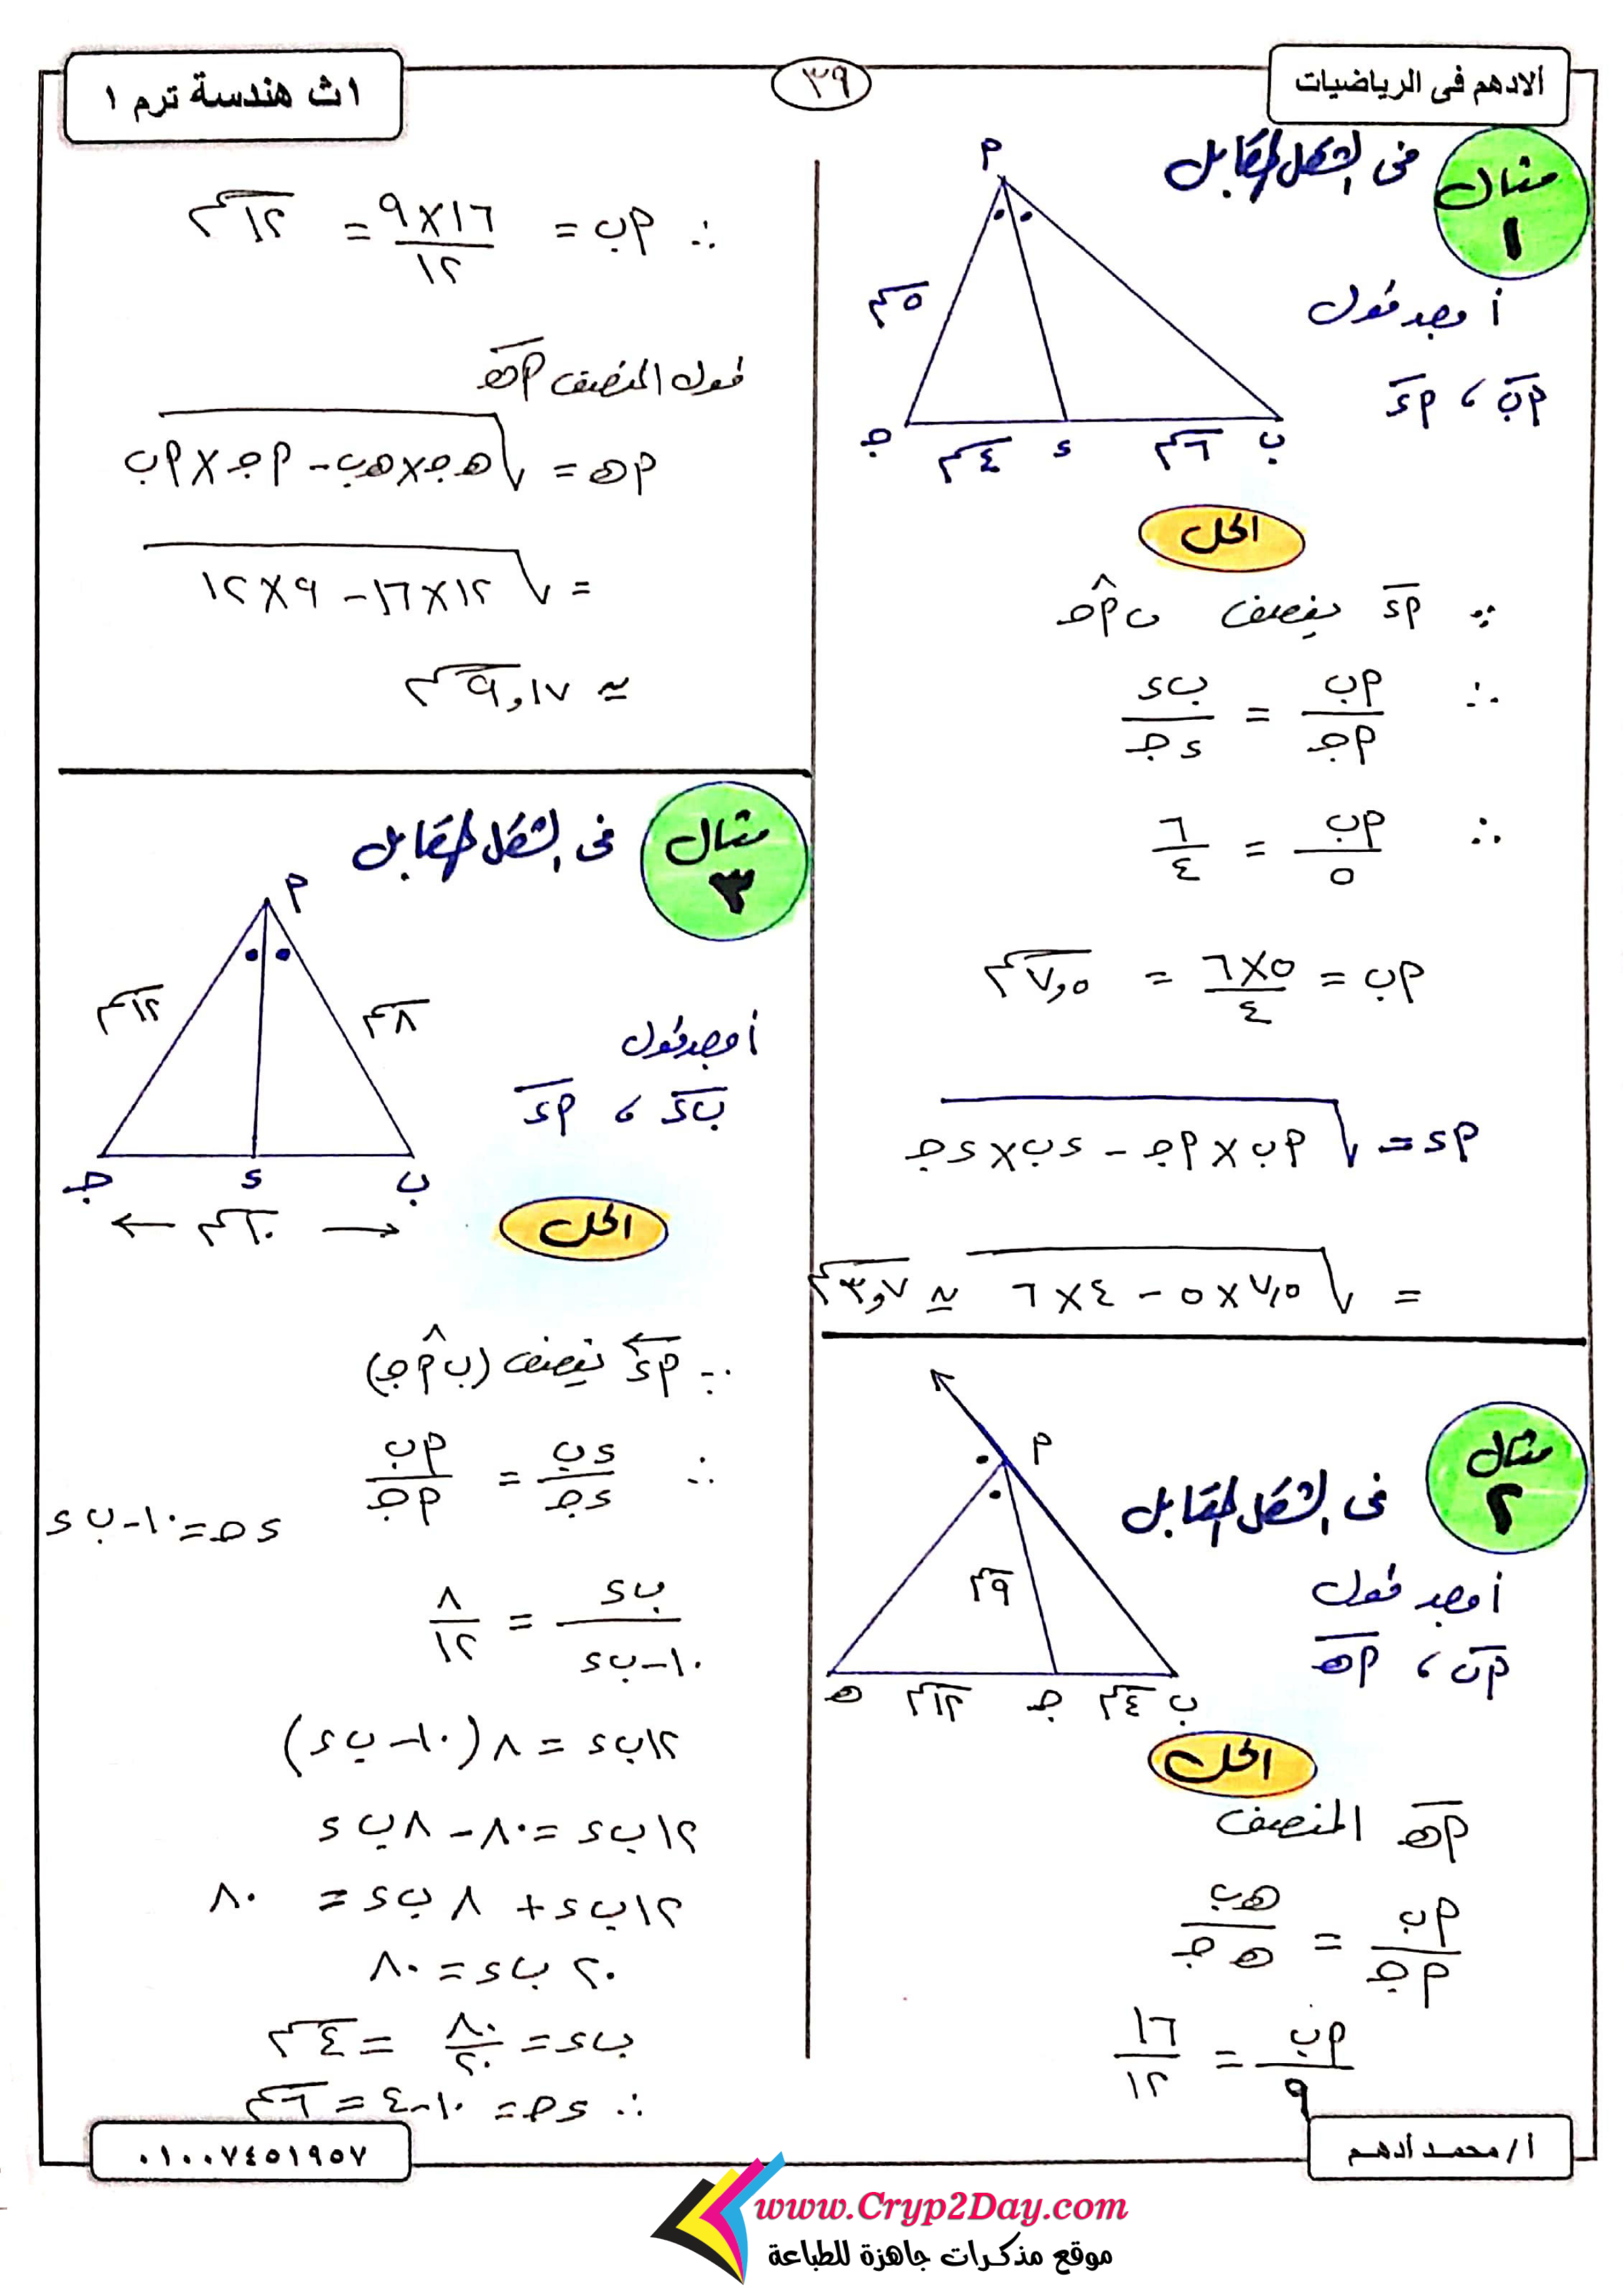 الادهم فى الرياضيات
٣٩
١ث هندسة ترم ١
مثال ١
فى الشكل المقابل
أوجد طول
أب ، أد
أ
٥سم
جـ ٤سم د ٦سم ب
الحل
∵ أد ينصف ب أ جـ
∴ أب/أجـ = ب د/د جـ
∴ أب/٥ = ٦/٤
أب = ٥×٦/٤ = ٧,٥سم
أد = √(أب × أجـ − د ب × د جـ)
= √(٧,٥×٥ − ٤×٦) ≃ ٣,٧سم
مثال ٢
فى الشكل المقابل
أوجد طول
أب ، أهـ
أ
٩سم
هـ ١٢سم جـ ٤سم ب
الحل
أهـ المنصف
أب/أجـ = هـ ب/هـ جـ
أب/٩ = ١٦/١٢
∴ أب = ١٦×٩/١٢ = ١٢سم
طول المنصف أهـ
أهـ = √(هـ جـ × هـ ب − أجـ × أب)
= √(١٢×١٦ − ٩×١٢)
≃ ٩,١٧سم
مثال ٣
فى الشكل المقابل
أ
١٢سم ٨سم
أوجد طول
ب د ، أد
جـ د ب
١٠سم
الحل
∵ أد ينصف (ب أ جـ)
∴ د ب/د جـ = أب/أجـ
د جـ = ١٠ − ب د
ب د/١٠ − ب د = ٨/١٢
١٢ب د = ٨(١٠ − ب د)
١٢ب د = ٨٠ − ٨ب د
١٢ب د + ٨ب د = ٨٠
٢٠ ب د = ٨٠
ب د = ٨٠/٢٠ = ٤سم
∴ د جـ = ١٠−٤ = ٦سم
أ/محمد أدهم
٠١٠٠٧٤٥١٩٥٧
www.Cryp2Day.com
موقع مذكرات جاهزة للطباعة